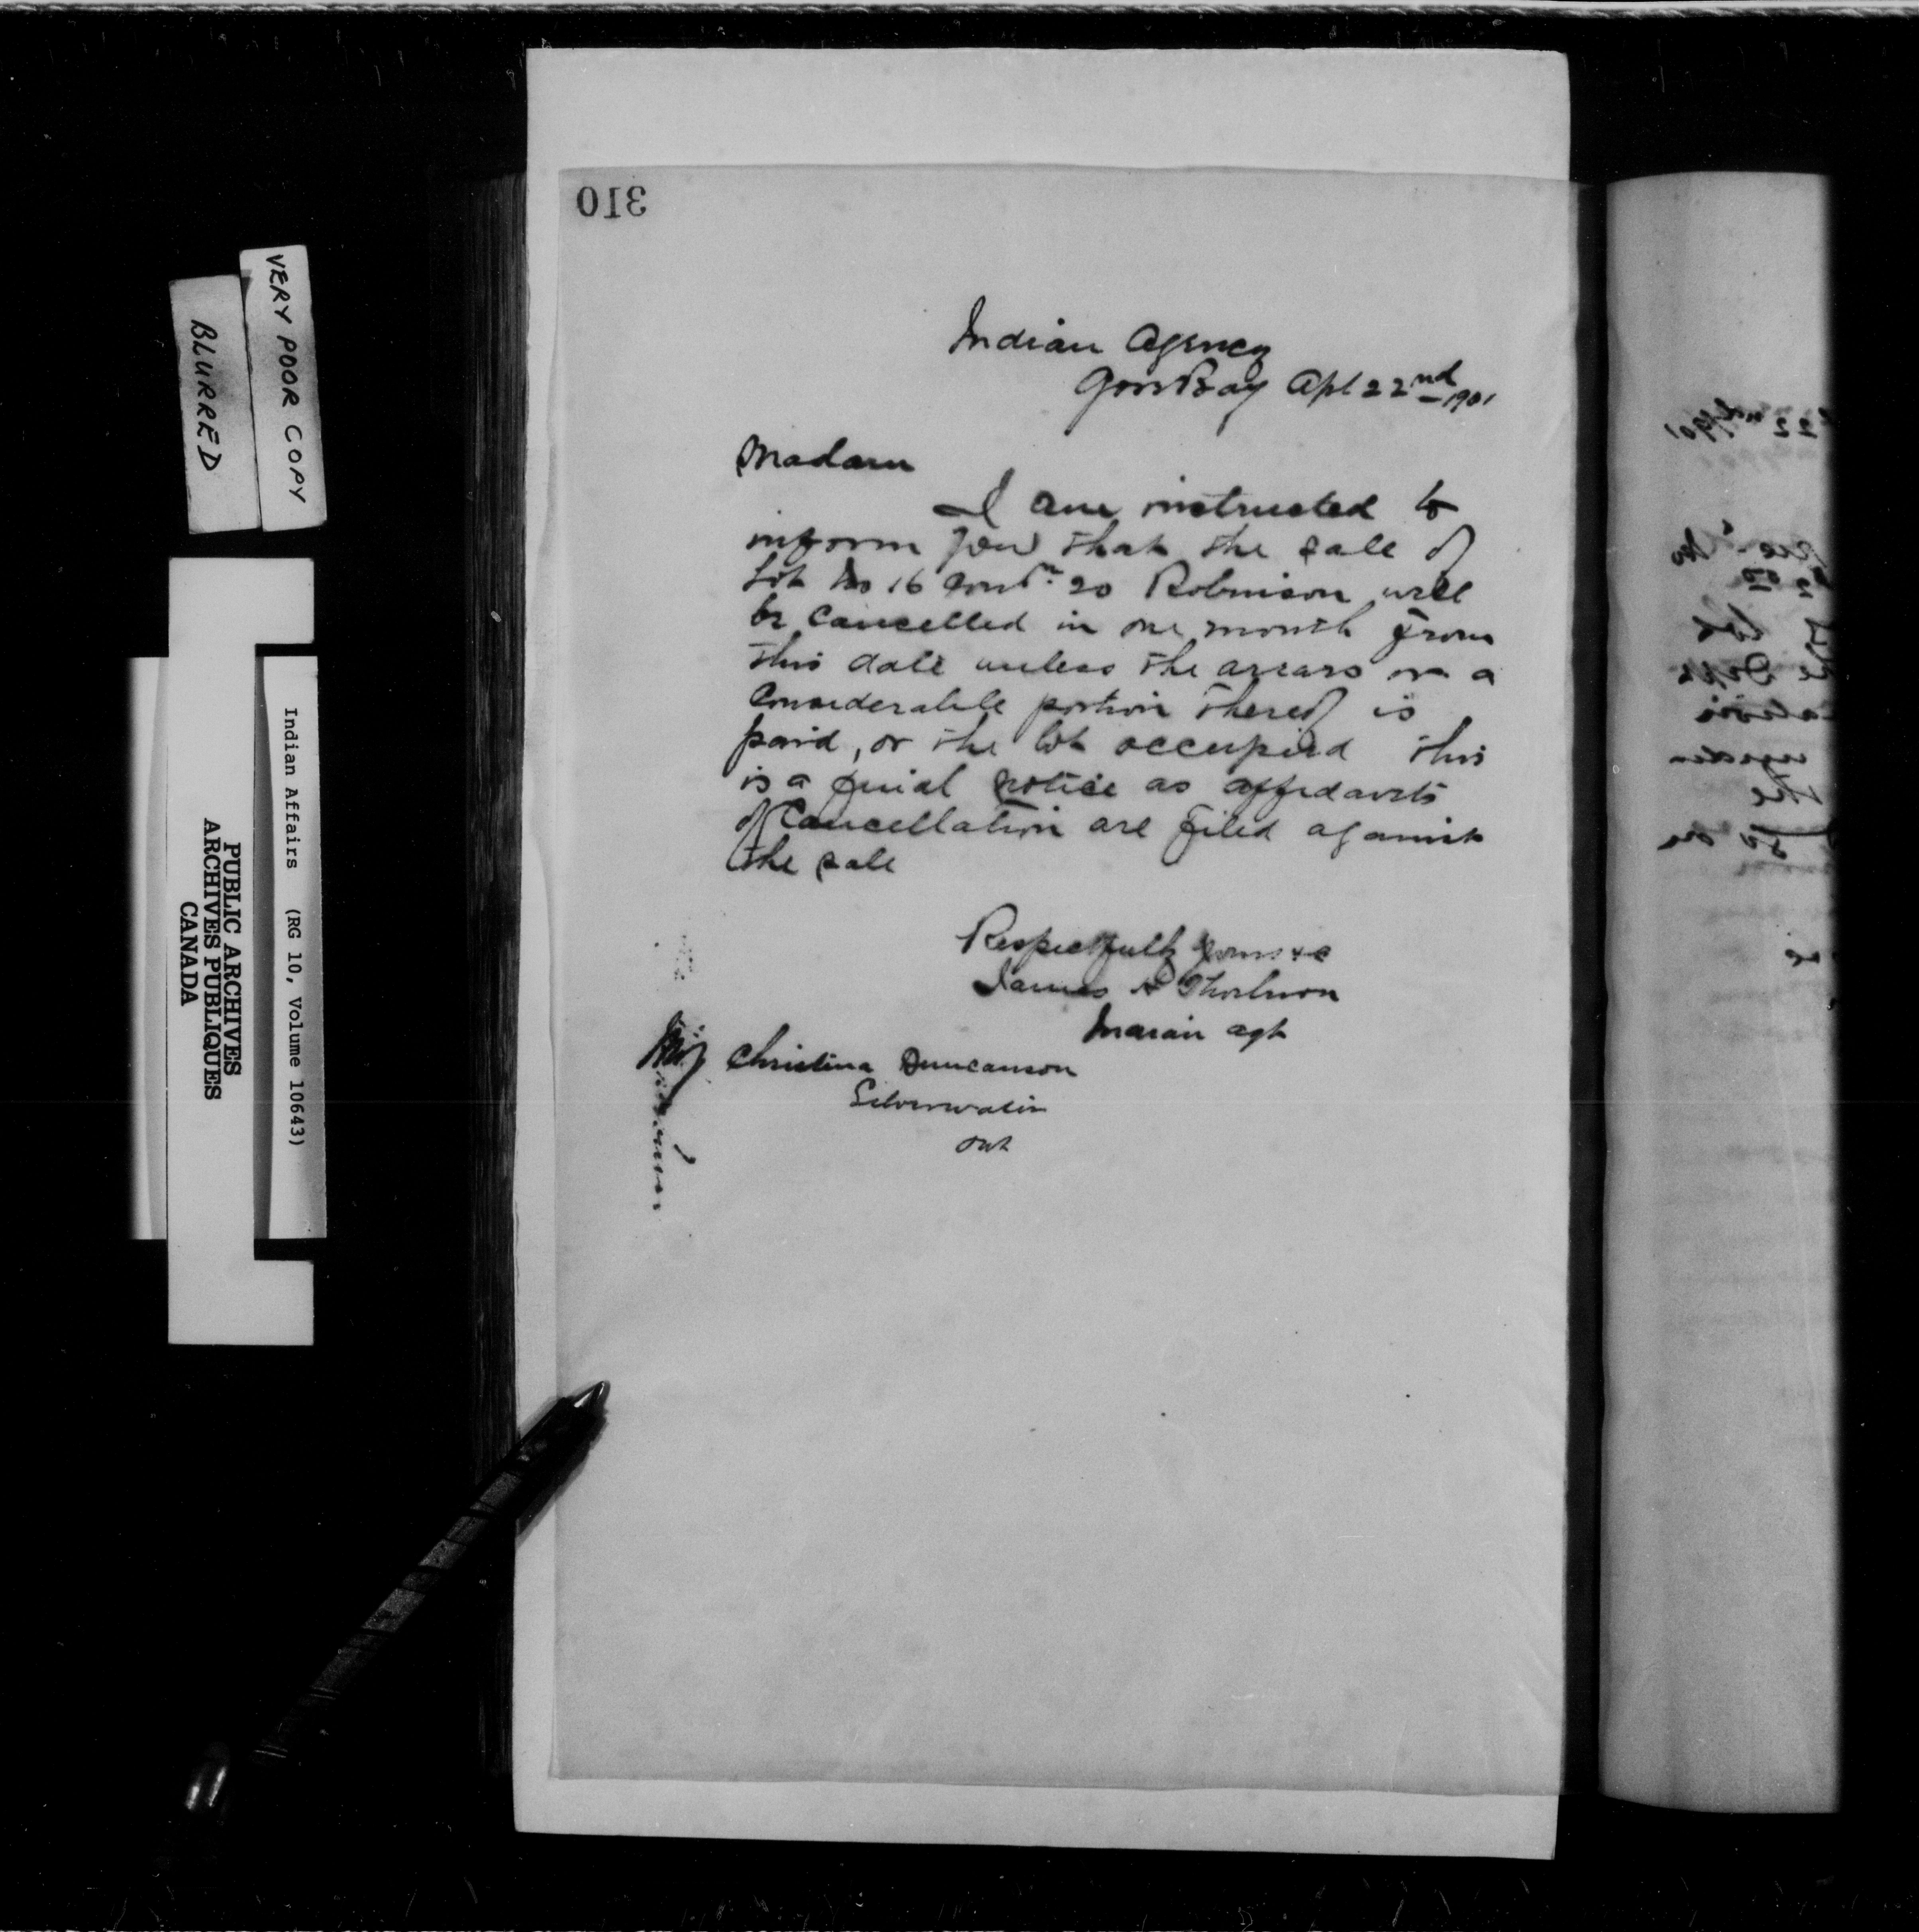 310
Indian Agency
Gore Bay Apl 22nd 1901
Madam
I am instructed to
inform you that the sale of
Lot No 16 Conn 20 Robinson will
be cancelled in one month from
this date unless the arears or a
considerable portion thereof is
paid, or the lot occupied this
is a final notice as affidavits
of Cancellation are filed against
the sale
Respectfully yours &c
James H Thorburn
Indian agt
Christina Duncanson
Silverwater
Ont
VERY POOR COPY
BLURRED
Indian Affairs (RG 10, Volume 10643)
PUBLIC ARCHIVES
ARCHIVES PUBLIQUES
CANADA